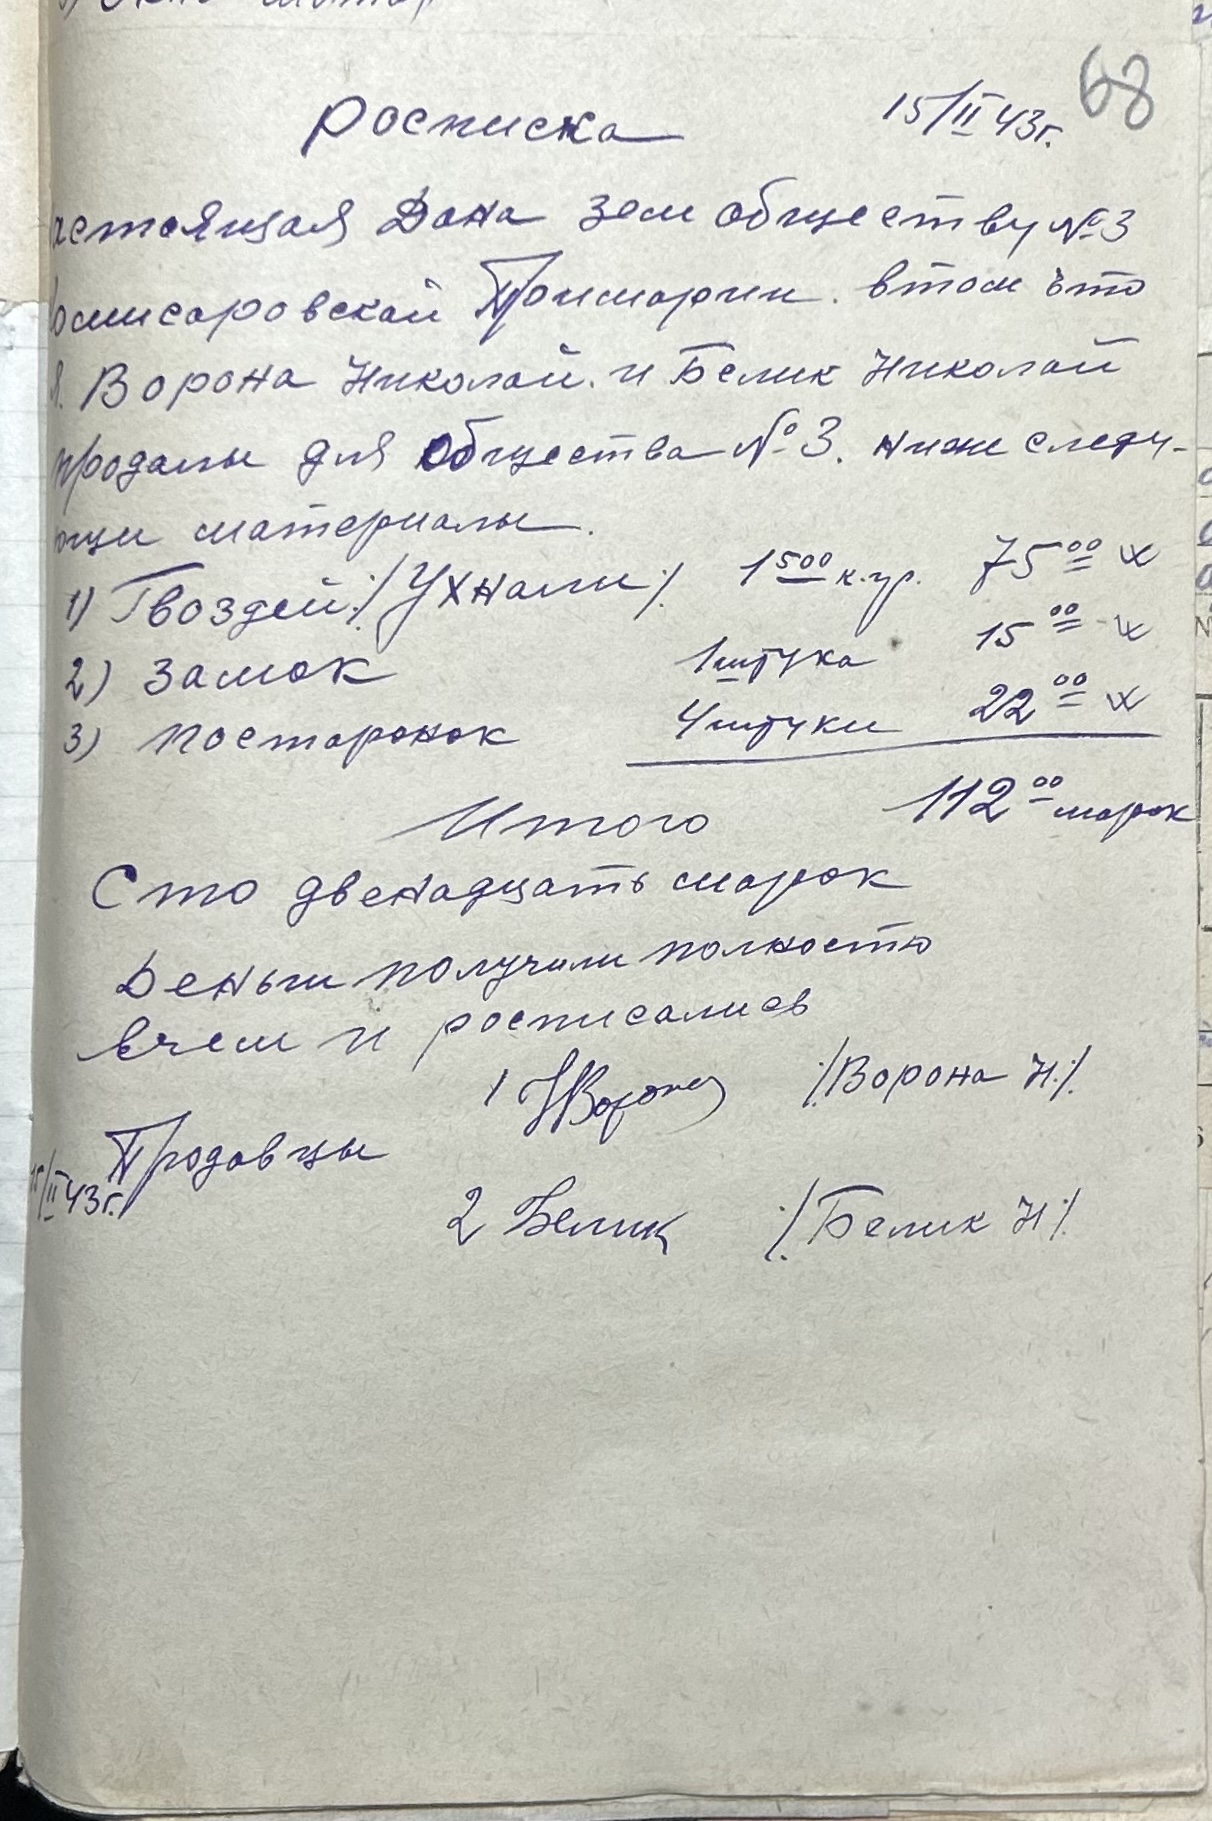 68
Росписка 15/II 43г.
астоящая Дана Зем обществу №3
омисаровской Примарии. втом что
Я. Ворона Николай. и Белик Николай
продали для Общества №3. ниже следу-
ющи материалы.
1) Гвоздей ⁒Ухнали⁒ 1500 к.гр. 75 00 х
2) Замок 1штука 15 00 х
3) постаронок 4штуки 22 00 х
Итого 112 00 марок
Сто двенадцать марок
Деньги получили полностю
вчем и росписались
1 НВорона ⁒Ворона Н.⁒
Продавцы
15/II 43г.
2 Белик ⁒Белик Н⁒